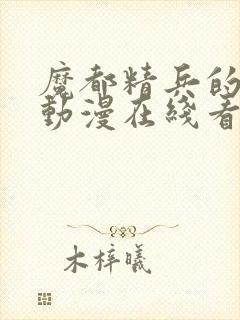 魔都精兵的
動漫在綫看
木梓曦